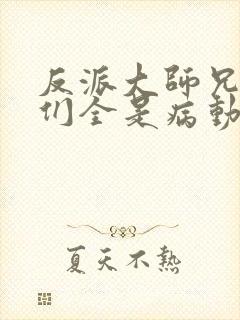 反派大師兄
们全是病
夏天不熱